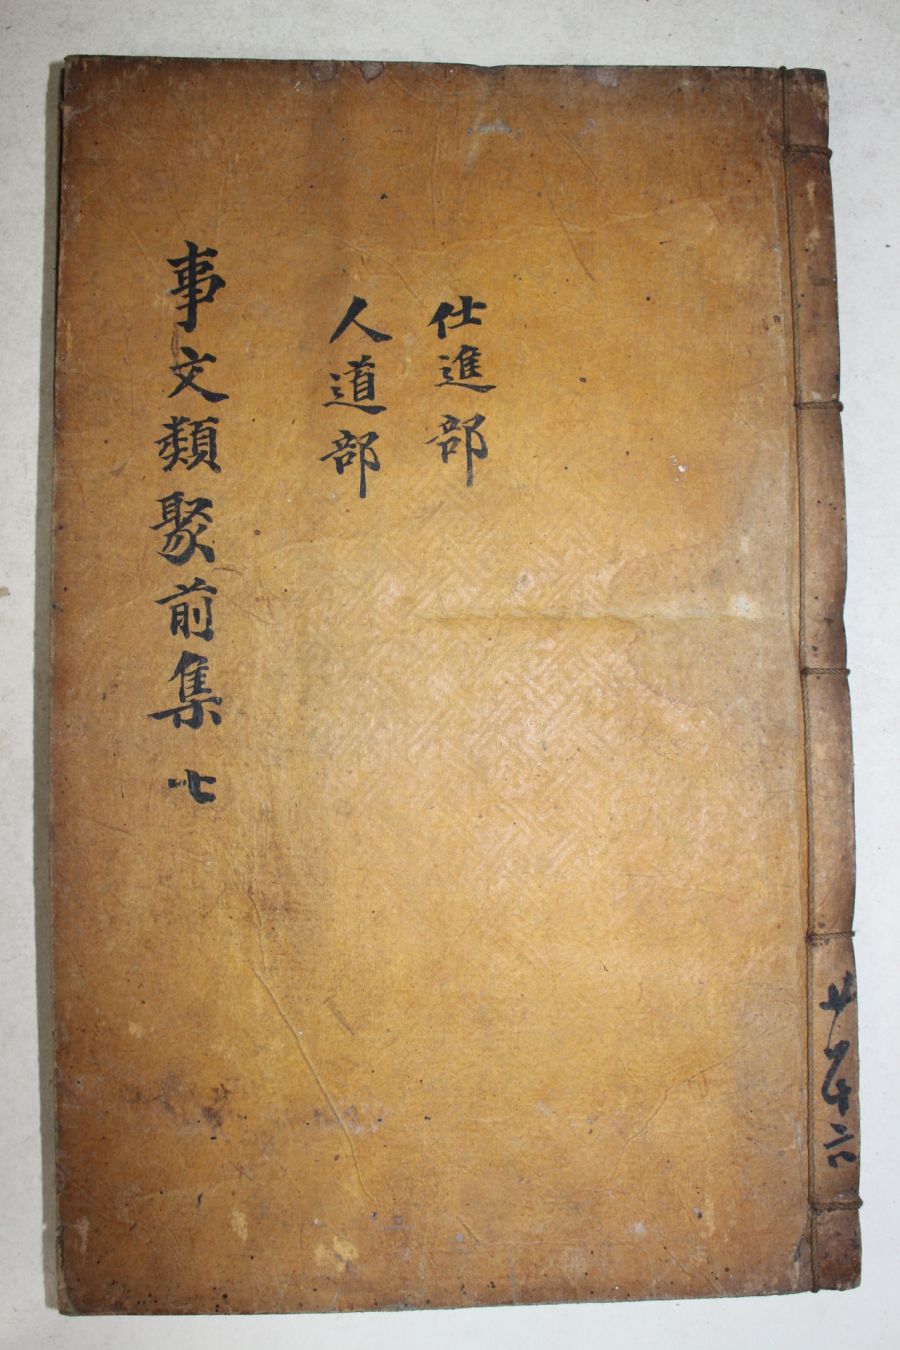 仕進部
人道部
事文類聚前集 七
共六十六